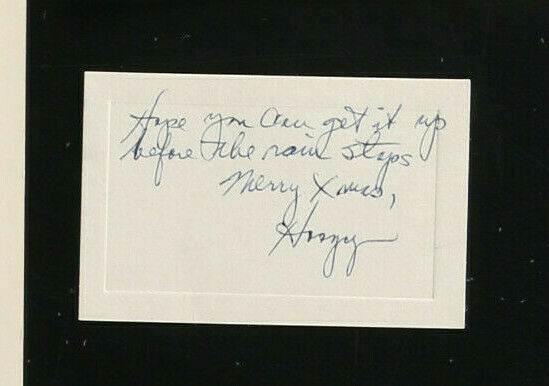 Hope you can get it up
before the rain stops
Merry Xmas,
Hoagy